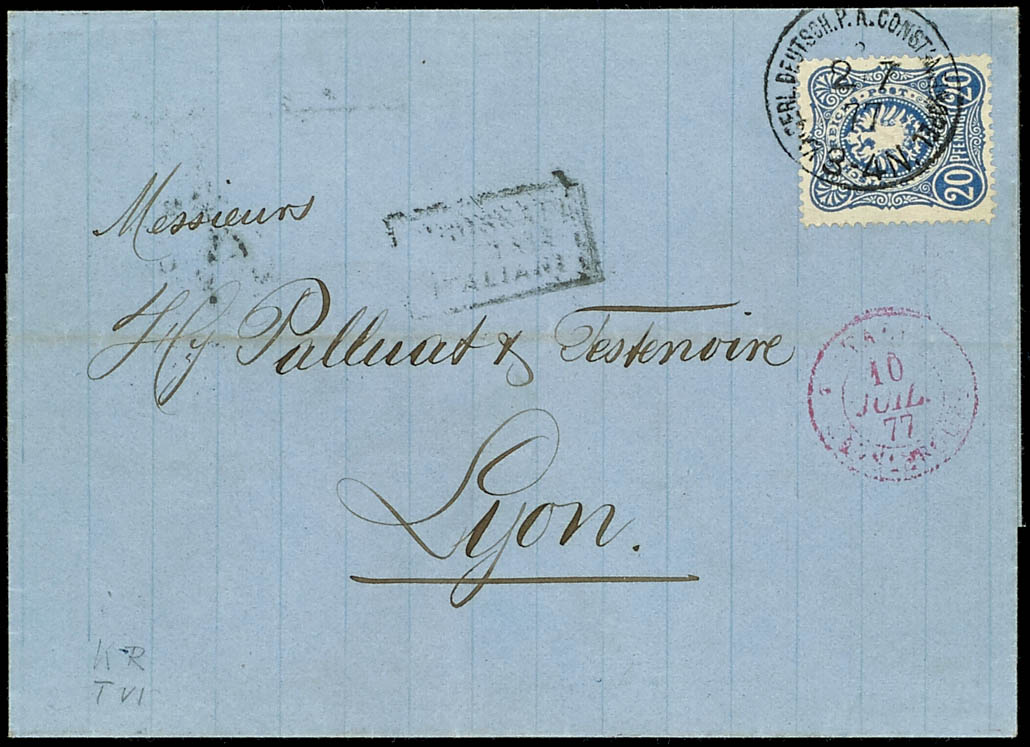 KAISERL. DEUTSCH. P. A. CONSTANTINOPEL
2 7
77
3-4N
REICHS-POST
20 PFENNIG 20
Messieurs
ITALIANI
Hy Palluat & Testenoire
10
JUIL.
77
Lyon.
KR
TVI